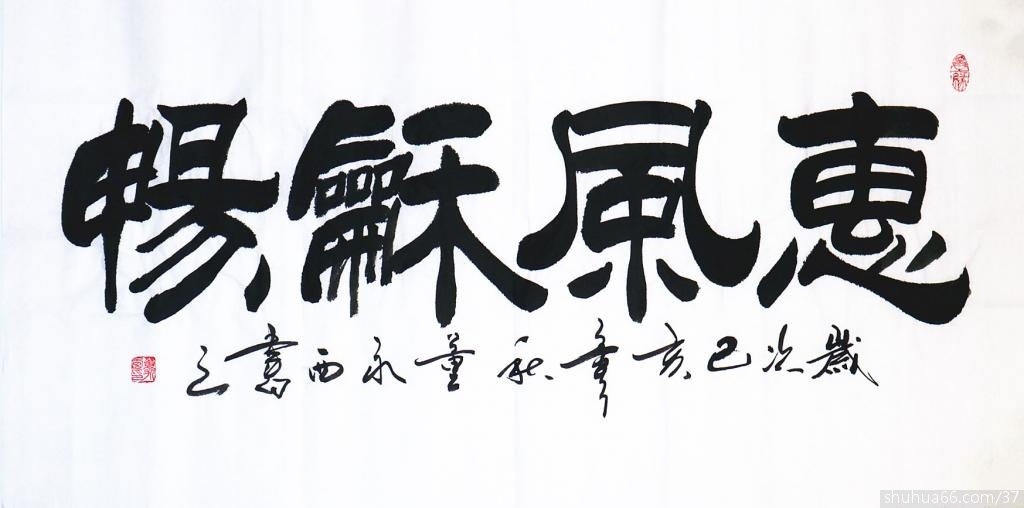 惠風龢暢
歲次己亥年秋董永西書之
shuhua66.com/37